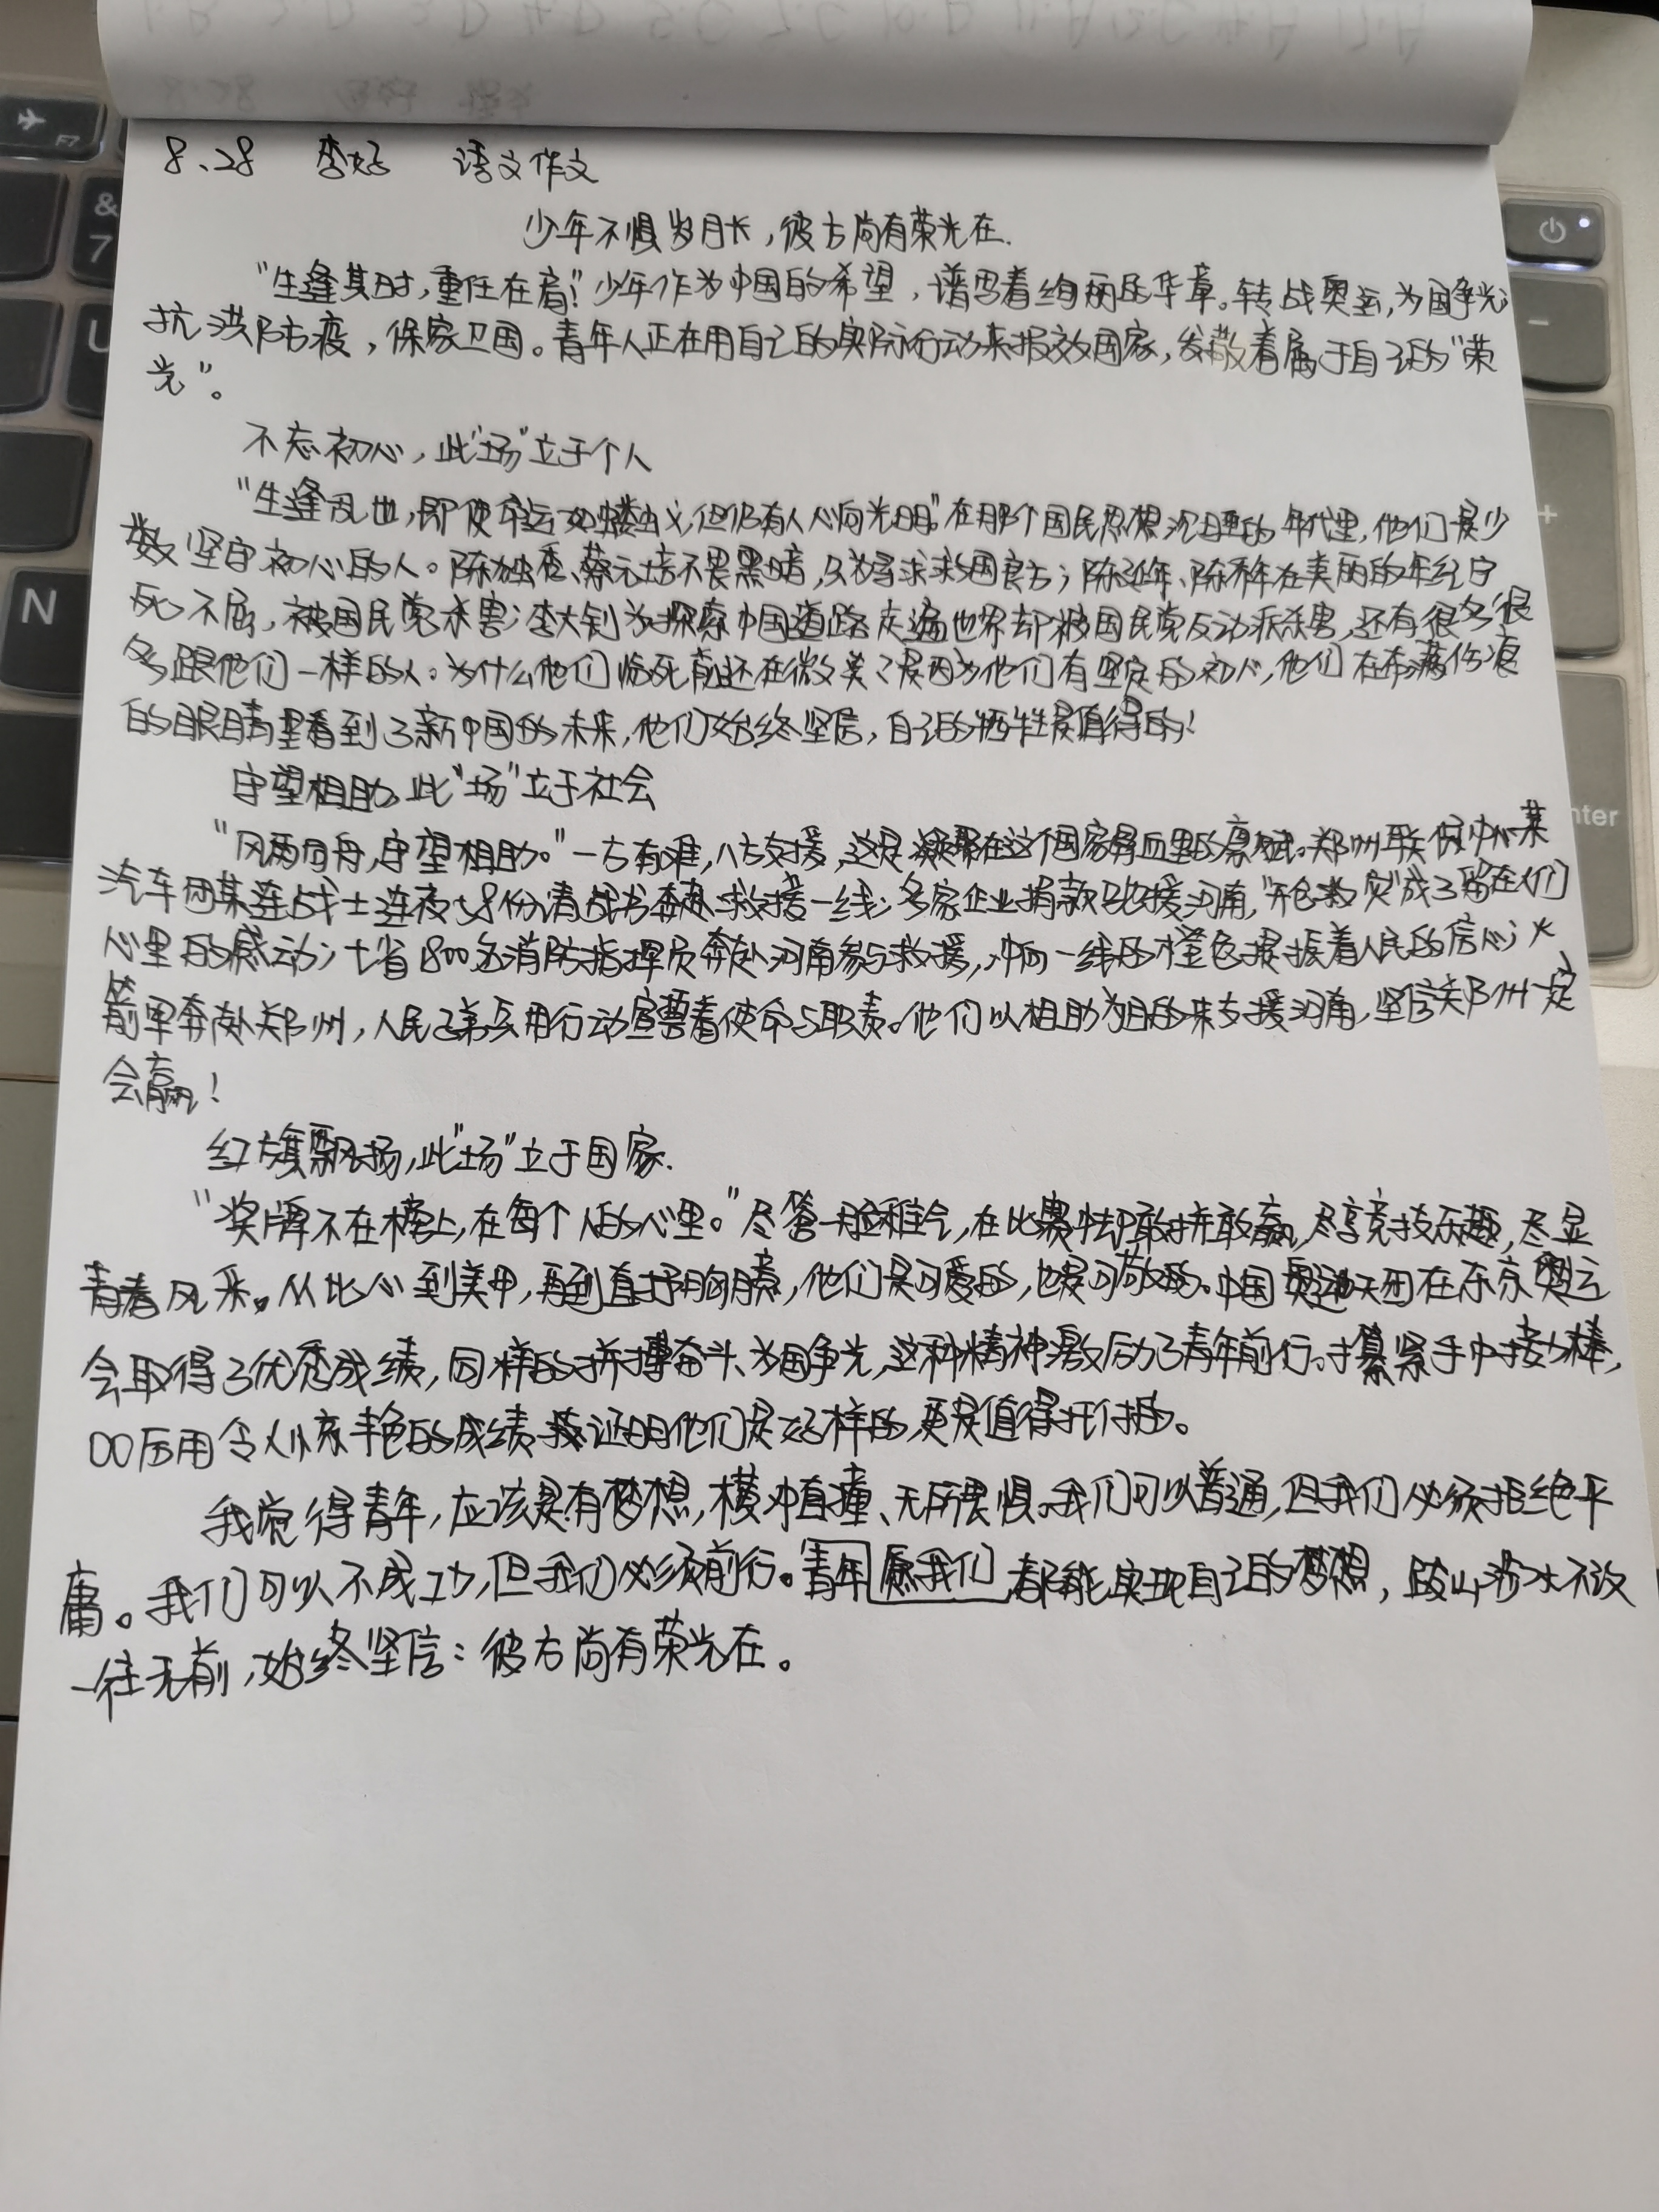 8.28 李好 语文作文
少年不惧岁月长，彼方尚有荣光在.
“生逢其时，重任在肩！”少年作为中国的希望，谱写着绚丽的华章。转战奥运，为国争光；
抗洪防疫，保家卫国。青年人正在用自己的实际行动来报效国家，发散着属于自己的“荣
光”。
不忘初心，此“场”立于个人
“生逢乱世，即使命运如蝼蚁，但仍有人心向光明。”在那个国民思想沉睡的年代里，他们是少
数坚守初心的人。陈独秀、蔡元培不畏黑暗，只为寻求救国良方；陈延年、陈乔年在美丽的年纪宁
死不屈，被国民党杀害；李大钊为探索中国道路走遍世界却被国民党反动派杀害，还有很多很
多跟他们一样的人。为什么他们临死前还在微笑？是因为他们有坚定的初心，他们在布满伤痕
的眼睛里看到了新中国的未来，他们始终坚信，自己的牺牲是值得的！
守望相助，此“场”立于社会
“风雨同舟，守望相助。”一方有难，八方支援，这是凝聚在这个国家骨血里的禀赋。郑州联保中心某
汽车团某连战士连夜58份请战书奔赴救援一线；多家企业捐款驰援河南，“开仓救灾”成了留在人们
心里的感动；七省1800名消防指挥员奔赴河南参与救援，冲向一线的橙色提振着人民的信心；火
箭军奔赴郑州，人民子弟兵用行动宣誓着使命与职责。他们以相助为目的来支援河南，坚信郑州一定
会赢！
红旗飘扬，此“场”立于国家.
“奖牌不在榜上，在每个人的心里。”尽管一脸稚气，在比赛中却敢拼敢赢，尽享竞技乐趣，尽显
青春风采。从比心到美甲，再到直抒胸臆，他们是可爱的，也是可敬的。中国奥运天团在东京奥运
会取得了优秀成绩，同样的拼搏奋斗、为国争光，这种精神激励了青年前行。攥紧手中接力棒，
00后用令人惊艳的成绩证明他们是好样的，更是值得托付的。
我觉得青年，应该是有梦想，横冲直撞、无所畏惧。我们可以普通，但我们必须拒绝平
庸。我们可以不成功，但我们必须前行。青年愿我们都能实现自己的梦想，跋山涉水不改
一往无前，始终坚信：彼方尚有荣光在。